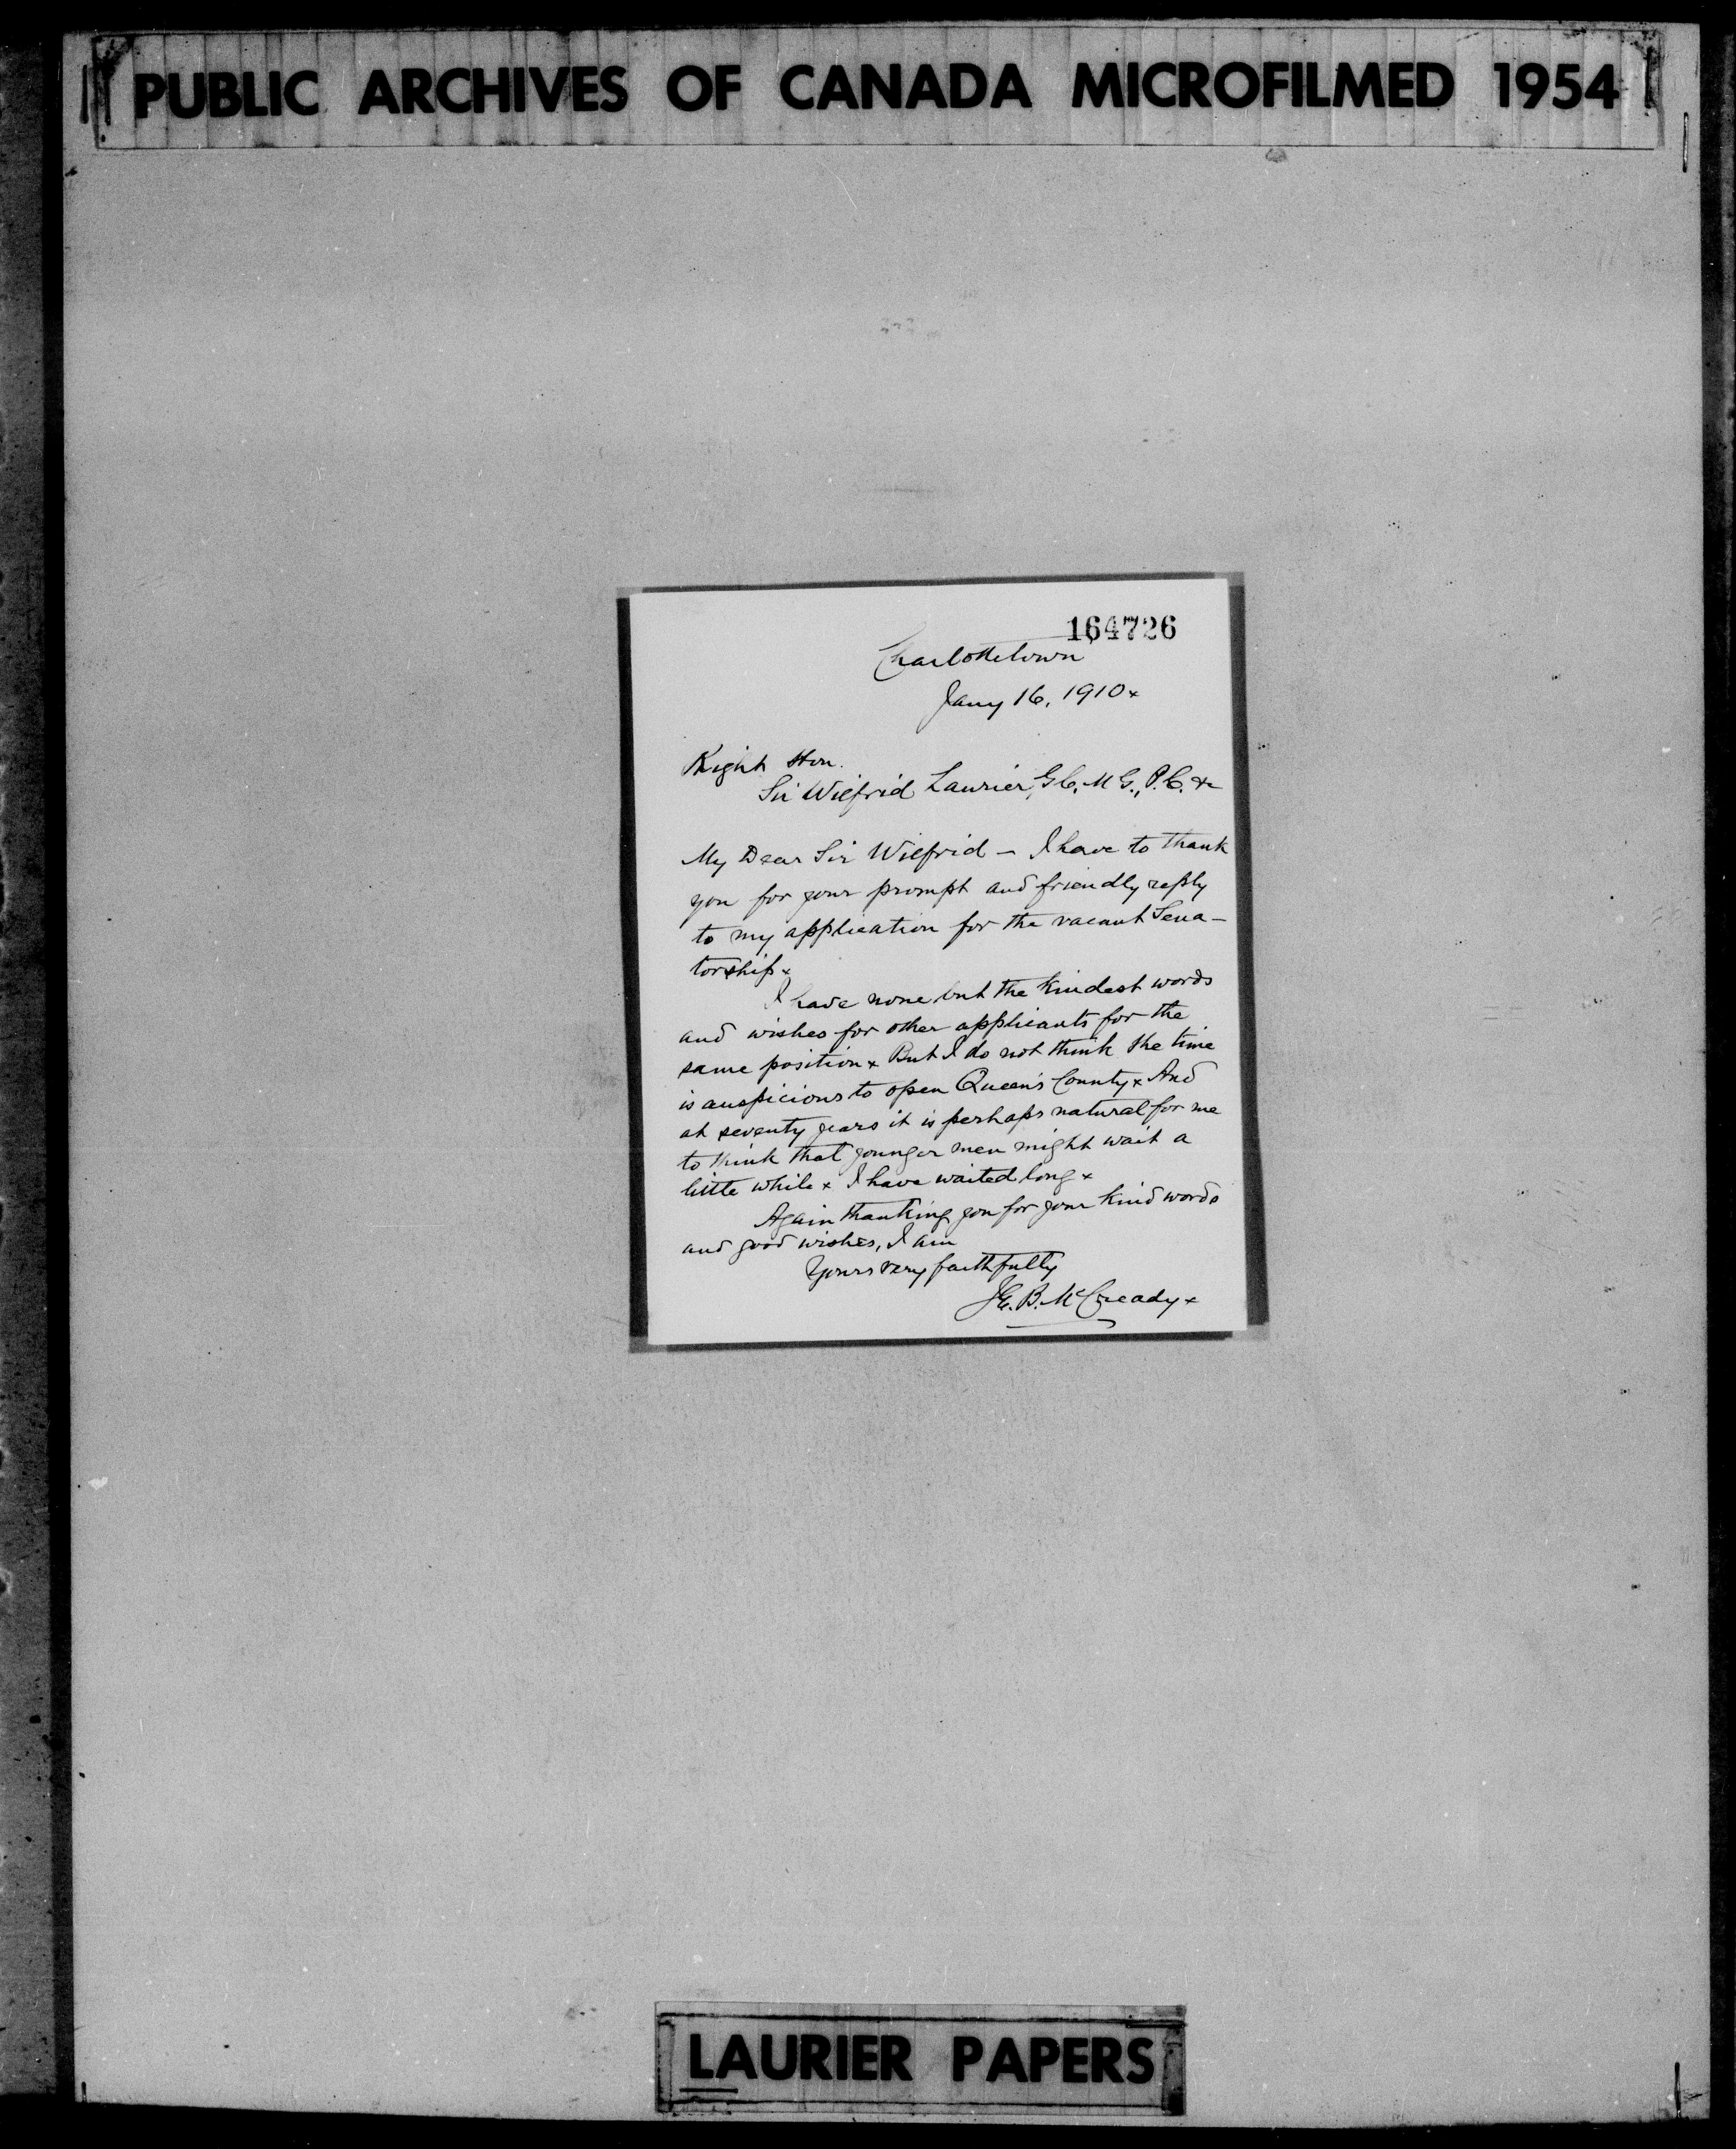 PUBLIC ARCHIVES OF CANADA MICROFILMED 1954
164726
Charlottetown
Jany 16, 1910x
Right Hon.
Sir Wilfrid Laurier, G.C.M.G., P.C. &c
My Dear Sir Wilfrid – I have to thank
you for your prompt and friendly reply
to my application for the vacant Sena-
torship x
I have none but the kindest words
and wishes for other applicants for the
same position x But I do not think the time
is auspicious to open Queen's County x And
at seventy years it is perhaps natural for me
to think that younger men might wait a
little while x I have waited long x
Again thanking you for your kind words
and good wishes, I am
Yours very faithfully
J.E.B. McCready x
LAURIER PAPERS